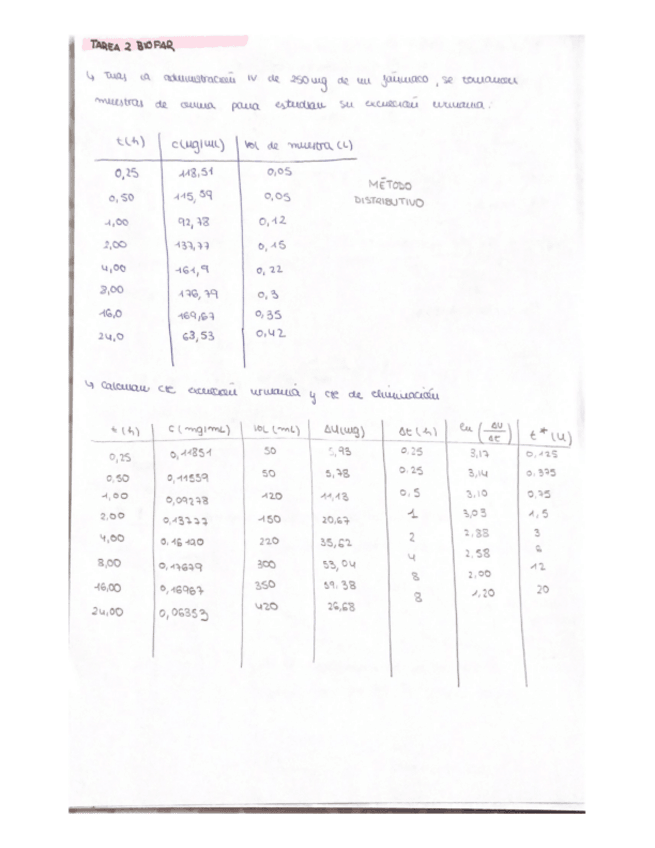 TAREA 2 BIOFAR
↳ Tras la administración IV de 250 mg de un fármaco, se tomaron
muestras de orina para estudiar su excreción urinaria.
t(h) c(µg/mL) Vol de muestra (L)
0,25 118,51 0,05
0,50 115,59 0,05
1,00 92,78 0,12
2,00 137,77 0,15
4,00 161,9 0,22
8,00 176,79 0,3
16,0 169,67 0,35
24,0 63,53 0,42
MÉTODO
DISTRIBUTIVO
↳ Calcular cte excreción urinaria y cte de eliminación
t(h) C(mg/mL) Vol (mL) ΔU(mg) Δt(h) ln (ΔU/Δt) t*(h)
0,25 0,11851 50 5,93 0.25 3,17 0,125
0,50 0,11559 50 5,78 0.25 3,14 0.375
1,00 0,09278 120 11,13 0,5 3.10 0,75
2,00 0,13777 150 20,67 1 3,03 1,5
4,00 0.16190 220 35,62 2 2,88 3
8,00 0,17679 300 53,04 4 2,58 6
16,00 0,16967 350 59.38 8 2,00 12
24,00 0,06353 420 26,68 8 1,20 20